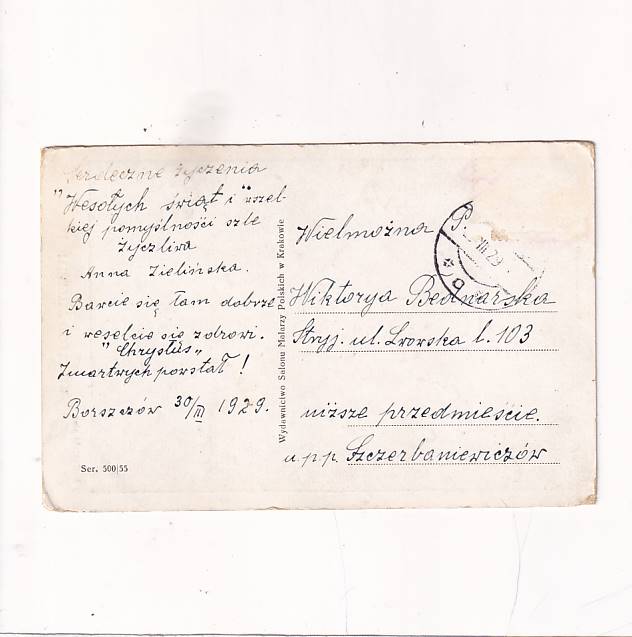 Serdeczne życzenia
"Wesołych świąt i" wszel-
kiej pomyślności szle
życzliwa
Anna Zielińska.
Bawcie się tam dobrze
i weselcie się zdrowi.
"Chrystus„
Zmartwychpowstał !
Borszczów 30/III 1929.
Ser. 500|55
Wydawnictwo Salonu Malarzy Polskich w Krakowie
Wielmożna P.
Wiktorya Bednarska
Stryj. ul. Lwowska l. 103
niższe przedmieście.
u.p.p. Szczerbaniewiczów
III 29